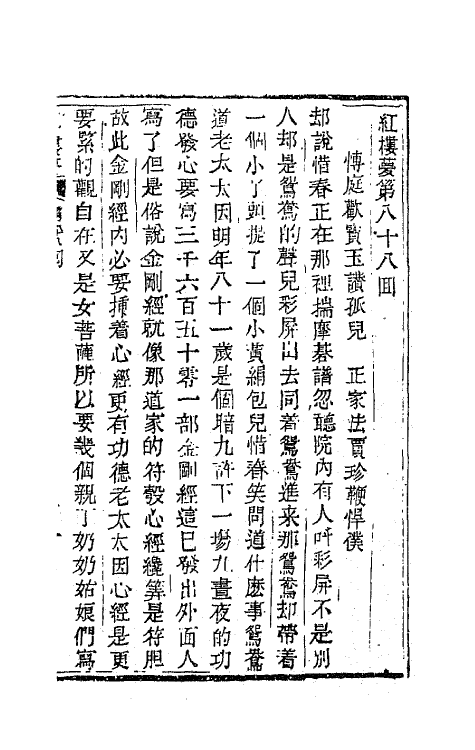 紅樓夢第八十八回
博庭歡寶玉讃孤兒　正家法賈珍鞭悍僕
却說惜春正在那裡揣摩碁譜忽聽院內有人呌彩屏不是別
人却是鴛鴦的聲兒彩屏出去同着鴛鴦進来那鴛鴦却帶着
一個小丫頭提了一個小黃絹包兒惜春笑問道什麽事鴛鴦
道老太太因明年八十一歲是個暗九許下一塲九晝夜的功
德發心要寫三千六百五十零一部金剛經這已發出外面人
寫了但是俗說金剛經就像那道家的符殼心經纔筭是符胆
故此金剛經內必要揷着心經更有功德老太太因心經是更
要緊的觀自在又是女菩薩所以要幾個親丁奶奶姑娘們寫